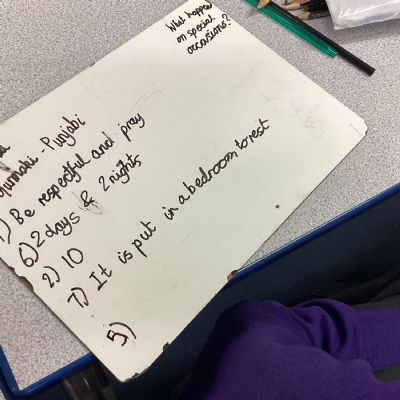 What happens
on special
occasions?
- Punjabi
1) Be respectful and pray
6) 2 days & 2 nights
2) 10
7) It is put in a bedroom to rest
5)